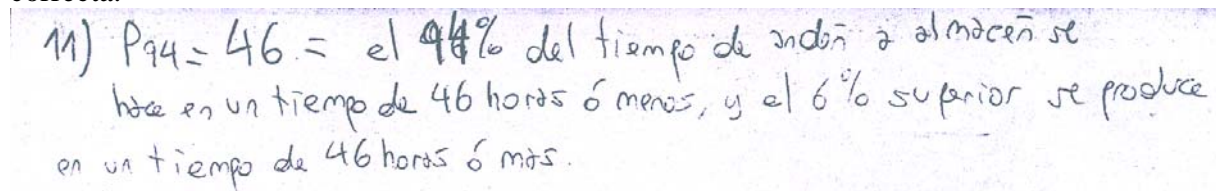 11) P94 = 46 = el 94% del tiempo de andén a almacén se
hace en un tiempo de 46 horas ó menos, y el 6% superior se produce
en un tiempo de 46 horas ó más.